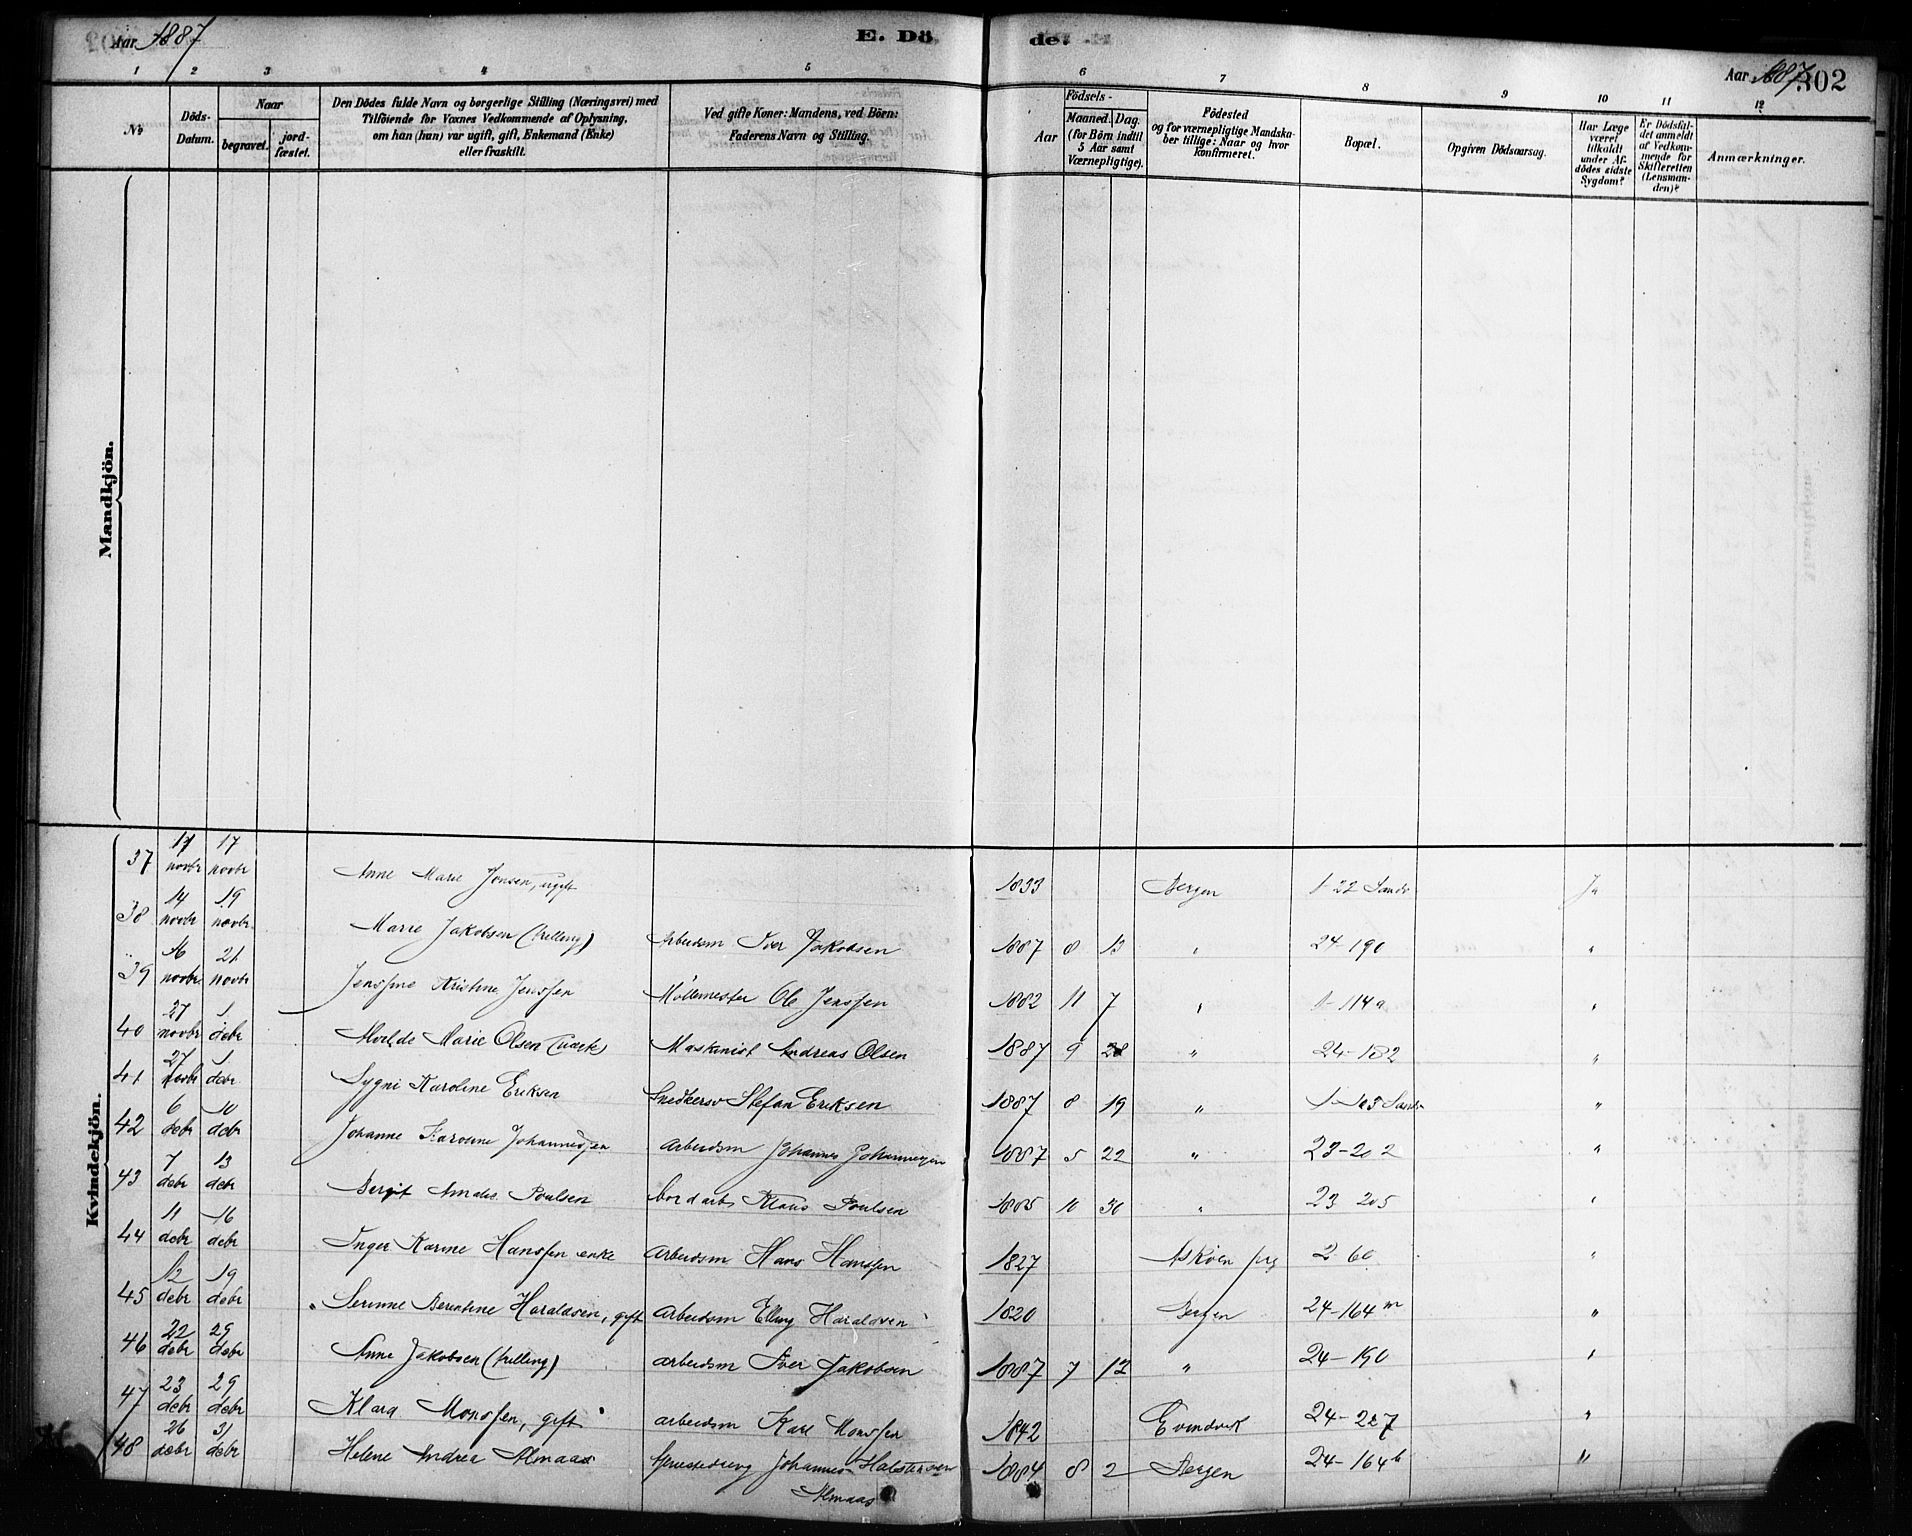 Aar 1887
E. Dö
de.
Aar 1887.
302
1 2 3 4 5 6 7 8 9 10 11 12
No
Döds-Datum.
Naar
begravet.
jord-fæstet.
Den Dödes fulde Navn og borgerlige Stilling (Næringsvei) med
Tilföiende for Voxnes Vedkommende af Oplysning,
om han (hun) var ugift, gift, Enkemand (Enke)
eller fraskilt.
Ved gifte Koner: Mandens, ved Börn:
Faderens Navn og Stilling.
Födsels-
Aar
Maaned. Dag.
(for Börn indtil
5 Aar samt
Værnepligtige).
Födested
og for værnepligtige Mandska-
ber tillige: Naar og hvor
konfirmeret.
Bopæl.
Opgiven Dödsaarsag.
Har Læge
været
tilkaldt
under Af-
dödes sidste
Sygdom?
Er Dödsfal-
det anmeldt
af Vedkom-
mende for
Skifteretten
(Lensman-
den)?
Anmærkninger.
Mandkjön.
Kvindekjön.
37 novbr 17 novbr Anne Marie Jensen, ugift 1833 Bergen 1-22 Sandv Ja
38 14 novbr 19 novbr Marie Jakobsen (trelling) Arbeidsm Iver Jakobsen 1887 8 13 " 24-190 "
39 16 novbr 21 novbr Jensine Kristine Jenssen Möllemester Ole Jenssen 1882 11 7 " 1-114a "
40 27 novbr 1 debr Alvilde Marie Olsen Maskinist Andreas Olsen 1887 9 28 " 24-132 "
41 27 novbr 1 debr Sygni Karoline Eriksen Snedkersv Stefan Eriksen 1887 8 19 " "
42 6 debr 10 debr Johanne Karoline Johannessen arbeidsm Johannes Johannessen 1887 5 22 " 23-202 "
43 7 debr 13 debr Bergit Amalie Poulsen Klaus Poulsen 1885 10 30 " 23-205 "
44 11 debr 16 debr Inger Karine Hanssen enke arbeidsm Hans Hanssen 1827 Asköen prg 2-60 "
45 12 debr 19 debr Serinne Berentine Haraldsen, gift arbeidsm Elling Haraldsen 1820 Bergen 24-164m "
46 22 debr 29 debr Anne Jakobsen (trelling) arbeidsm Iver Jakobsen 1887 7 13 " 24-190 "
47 23 debr 29 debr Klara Monssen, gift arbeidsm Karl Monssen 1842 Evindvik 24-227 "
48 26 debr 31 debr Helene Andrea Almaas Johannes Halstensen 1884 8 2 Bergen 24-164b "
Almaas